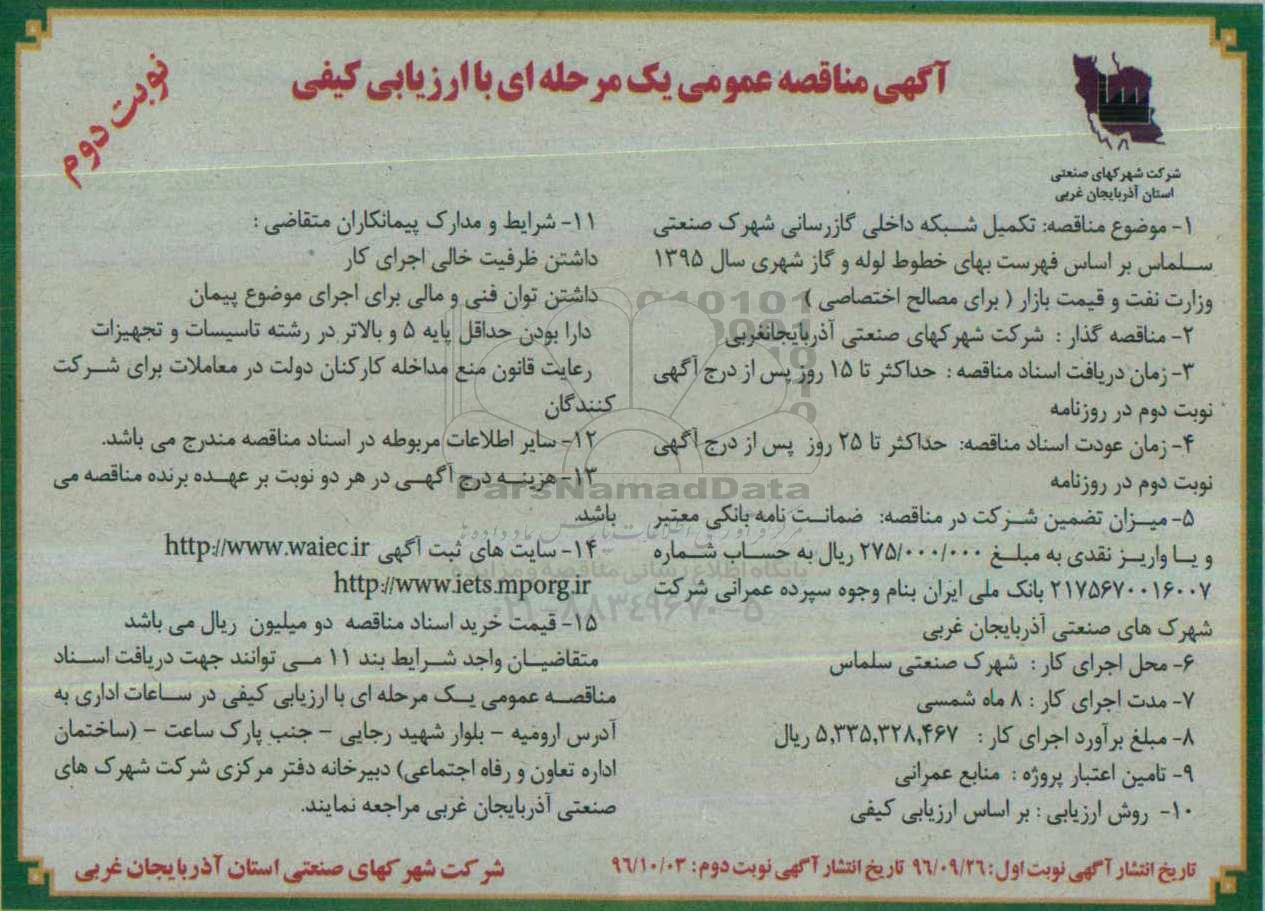 آگهی مناقصه عمومی یک مرحله ای با ارزیابی کیفی
نوبت دوم
شرکت شهرکهای صنعتی
استان آذربایجان غربی
۱- موضوع مناقصه: تکمیل شبکه داخلی گازرسانی شهرک صنعتی
سلماس بر اساس فهرست بهای خطوط لوله و گاز شهری سال ۱۳۹۵
وزارت نفت و قیمت بازار ( برای مصالح اختصاصی )
۲- مناقصه گذار : شرکت شهرکهای صنعتی آذربایجانغربی
۳- زمان دریافت اسناد مناقصه : حداکثر تا ۱۵ روز پس از درج آگهی
نوبت دوم در روزنامه
۴- زمان عودت اسناد مناقصه: حداکثر تا ۲۵ روز پس از درج آگهی
نوبت دوم در روزنامه
۵- میزان تضمین شرکت در مناقصه: ضمانت نامه بانکی معتبر
و یا واریز نقدی به مبلغ ۲۷۵/۰۰۰/۰۰۰ ریال به حساب شماره
۲۱۷۵۶۷۰۰۱۶۰۰۷ بانک ملی ایران بنام وجوه سپرده عمرانی شرکت
شهرک های صنعتی آذربایجان غربی
۶- محل اجرای کار : شهرک صنعتی سلماس
۷- مدت اجرای کار : ۸ ماه شمسی
۸- مبلغ برآورد اجرای کار : ۵,۳۳۵,۳۲۸,۴۶۷ ریال
۹- تامین اعتبار پروژه : منابع عمرانی
۱۰- روش ارزیابی : بر اساس ارزیابی کیفی
۱۱- شرایط و مدارک پیمانکاران متقاضی :
داشتن ظرفیت خالی اجرای کار
داشتن توان فنی و مالی برای اجرای موضوع پیمان
دارا بودن حداقل پایه ۵ و بالاتر در رشته تاسیسات و تجهیزات
رعایت قانون منع مداخله کارکنان دولت در معاملات برای شرکت
کنندگان
۱۲- سایر اطلاعات مربوطه در اسناد مناقصه مندرج می باشد.
۱۳- هزینه درج آگهی در هر دو نوبت بر عهده برنده مناقصه می
باشد.
۱۴- سایت های ثبت آگهی http://www.waiec.ir
http://www.iets.mporg.ir
۱۵- قیمت خرید اسناد مناقصه دو میلیون ریال می باشد
متقاضیان واجد شرایط بند ۱۱ می توانند جهت دریافت اسناد
مناقصه عمومی یک مرحله ای با ارزیابی کیفی در ساعات اداری به
آدرس ارومیه - بلوار شهید رجایی - جنب پارک ساعت - (ساختمان
اداره تعاون و رفاه اجتماعی) دبیرخانه دفتر مرکزی شرکت شهرک های
صنعتی آذربایجان غربی مراجعه نمایند.
ParsNamadData
پایگاه اطلاع رسانی مناقصه و مزایده
۰۲۱-۸۸۳۴۹۶۷۰-۵
تاریخ انتشار آگهی نوبت اول: ۹۶/۰۹/۲۶ تاریخ انتشار آگهی نوبت دوم: ۹۶/۱۰/۰۳
شرکت شهرکهای صنعتی استان آذربایجان غربی